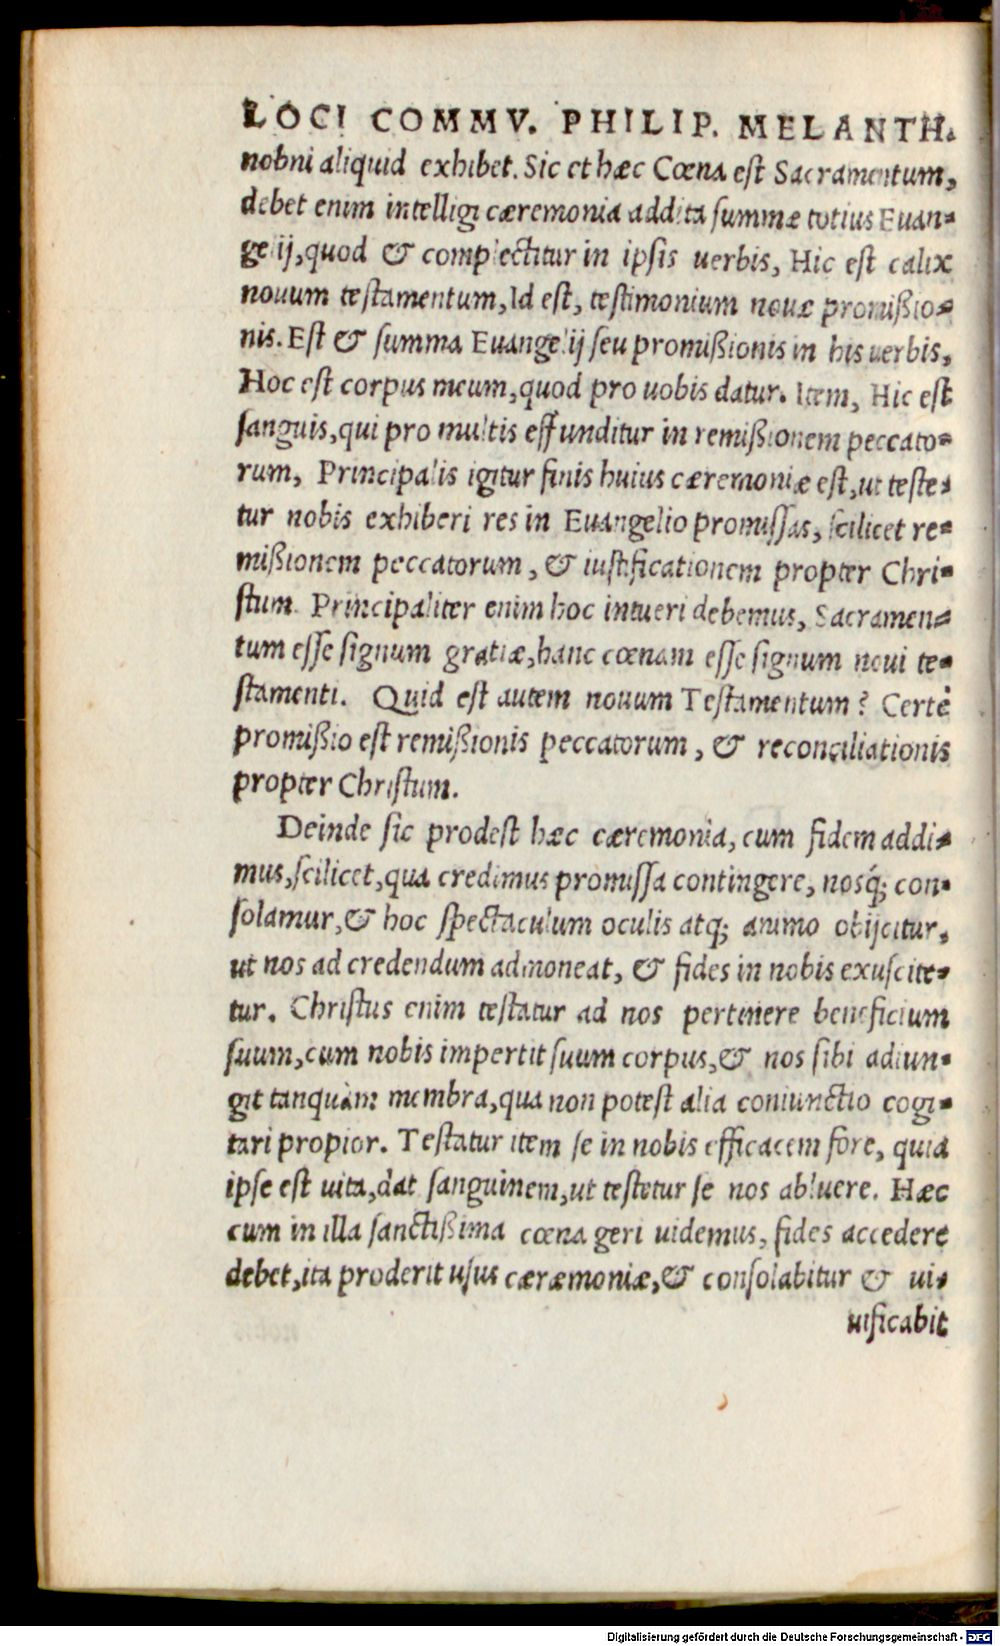 LOCI COMMV. PHILIP. MELANTH.
nobni aliquid exhibet. Sic et hæc Cœna est Sacramentum,
debet enim intelligi cæremonia addita summæ totius Euan-
gelij, quod & complectitur in ipsis uerbis, Hic est calix
nouum testamentum, Id est, testimonium nouæ promißio-
nis. Est & summa Euangelij seu promißionis in his uerbis,
Hoc est corpus meum, quod pro uobis datur. Item, Hic est
sanguis, qui pro multis effunditur in remißionem peccato-
rum, Principalis igitur finis huius cæremoniæ est, ut teste-
tur nobis exhiberi res in Euangelio promissas, scilicet re-
mißionem peccatorum, & iustificationem propter Chri-
stum. Principaliter enim hoc intueri debemus, Sacramen-
tum esse signum gratiæ, hanc cœnam esse signum noui te-
stamenti. Quid est autem nouum Testamentum? Certè
promißio est remißionis peccatorum, & reconciliationis
propter Christum.
Deinde sic prodest hæc cæremonia, cum fidem addi-
mus, scilicet, qua credimus promissa contingere, nosq́; con-
solamur, & hoc spectaculum oculis atq; animo obijcitur,
ut nos ad credendum admoneat, & fides in nobis exuscite-
tur. Christus enim testatur ad nos pertinere beneficium
suum, cum nobis impertit suum corpus, & nos sibi adiun-
git tanquàm membra, qua non potest alia coniunctio cogi-
tari propior. Testatur item se in nobis efficacem fore, quia
ipse est uita, dat sanguinem, ut testetur se nos abluere. Hæc
cum in illa sanctißima cœna geri uidemus, fides accedere
debet, ita proderit usus cæræmoniæ, & consolabitur & ui-
uificabit
Digitalisierung gefördert durch die Deutsche Forschungsgemeinschaft - DFG